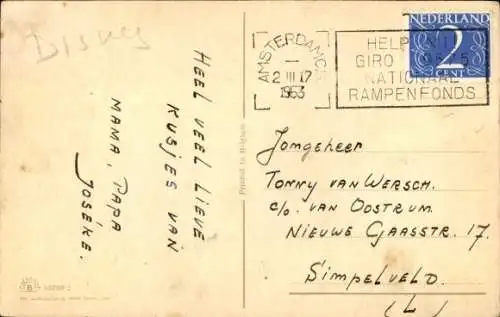 Disney
HEEL VEEL LIEVE
KUSJES VAN
MAMA, PAPA
JOSÉKE.
Printed in Belgium
AMSTERDAM
2 III 17
1953
HELPT
GIRO
NATIONAAL
RAMPENFONDS
NEDERLAND
2
CENT
Jongeheer
TONNY VAN WERSCH.
c/o. VAN OOSTRUM.
NIEUWE GAASSTR. 17.
SIMPELVELD.
(L)